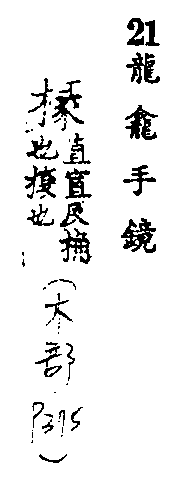 21龍龕手鏡
椽直宣反桷
也榱也
(木部P375)